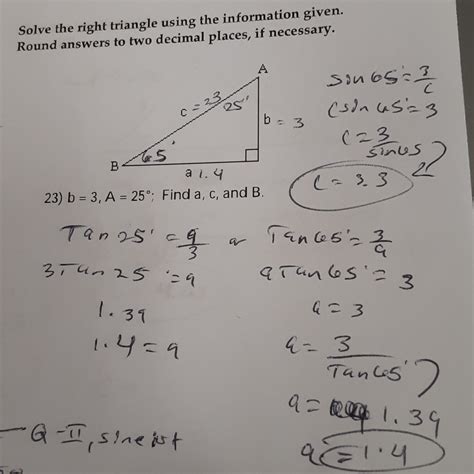 Solve the right triangle using the information given.
Round answers to two decimal places, if necessary.
A
c = 23
25'
b = 3
B
65'
a 1.4
sin 65' = 3/c
c sin 65' = 3
c = 3/sin 65
c = 3.3
23) b = 3, A = 25°; Find a, c, and B.
Tan 25' = a/3 or Tan 65' = 3/a
3 Tan 25 = a
a Tan 65' = 3
1.39
a = 3
1.4 = a
a = 3/Tan 65'
a = 1.39
a = 1.4
Q-II, sine